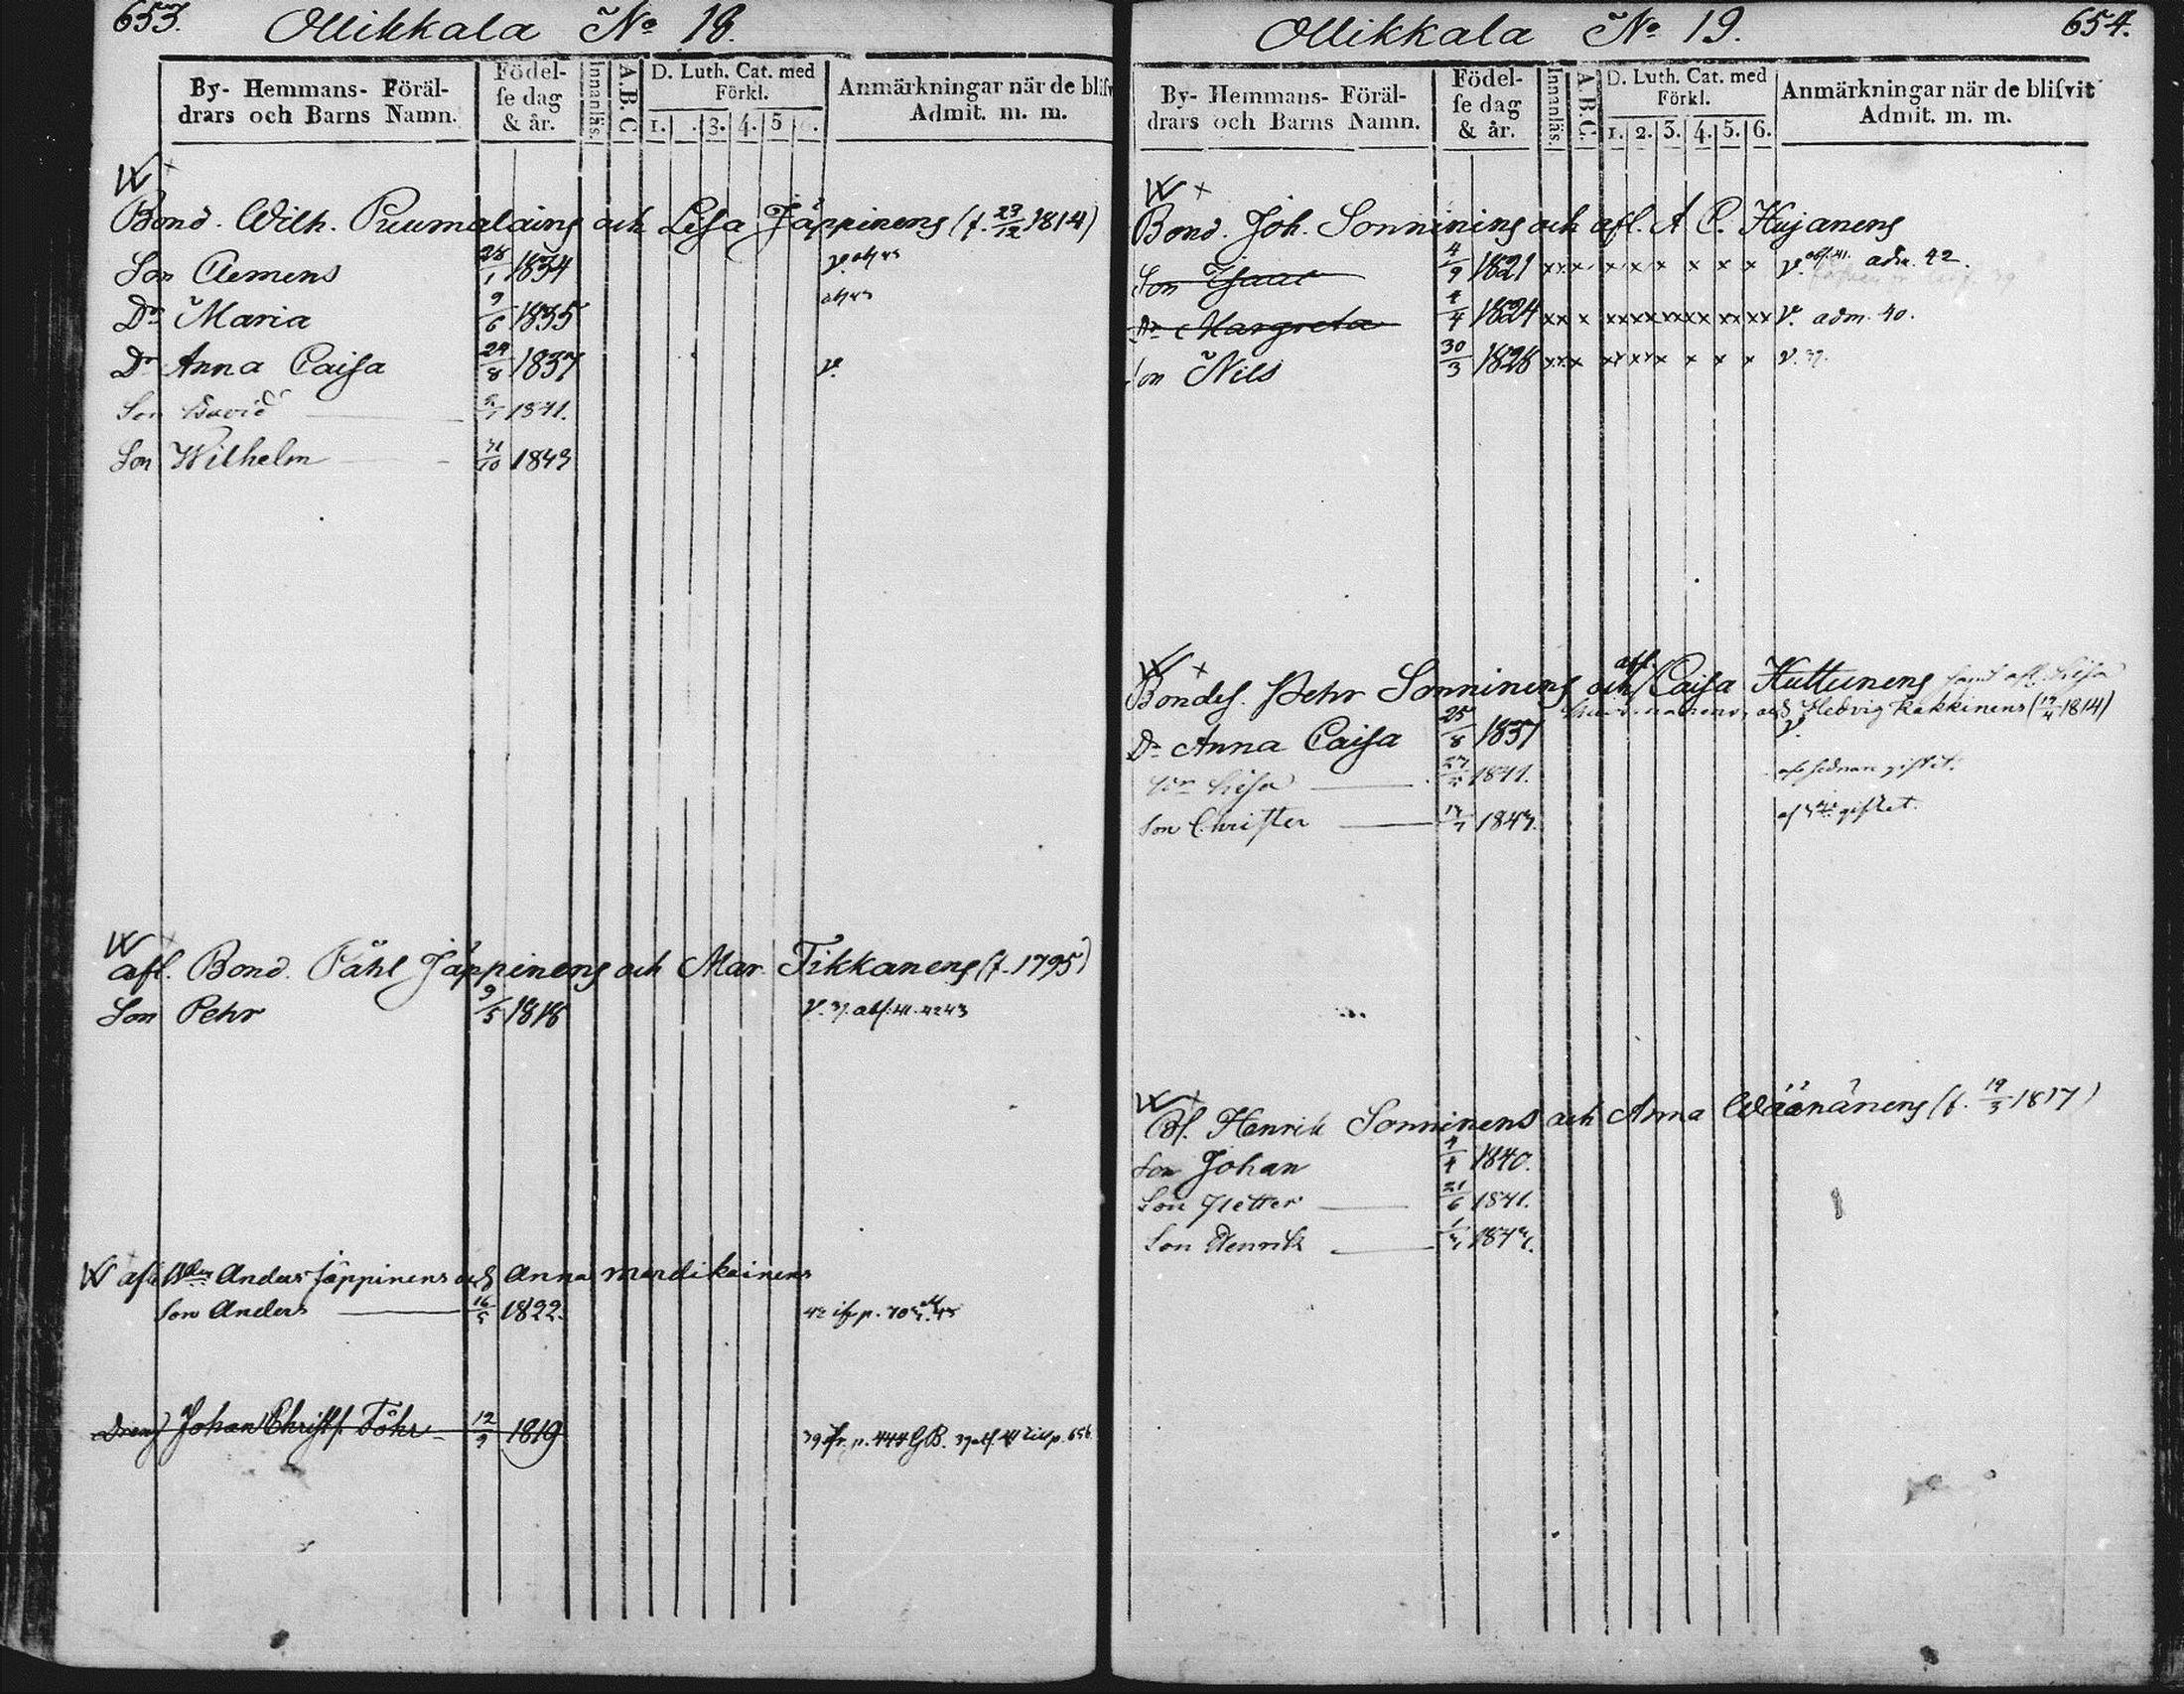 653.
Ollikkala No 18.
By- Hemmans- Föräl-
drars och Barns Namn.
Födel-
se dag
& år.
Innanläs.
A.B.C
D. Luth. Cat. med
Förkl.
1. . 3. 4. 5
Anmärkningar när de blifv
Admit. m. m.
Bond. Wilh. Puumalains och Lisa Jäppinens (f. 23/12 1814)
Son Clemens 28/1 1834
Dr Maria 9/6 1835
Dr Anna Caisa 29/8 1837 v.
Son David 1841.
Son Wilhelm 31/10 1843
afl. Bond. Påhl Jäppinens och Mar. Tikkanens (f. 1795)
Son Pehr 9/5 1818 v. 37. abs. 41. 42 43
afl. Anders Jäppinens och Anna Mardikainens
Son Anders 16/5 1822.
Dreng Johan Christ. Töhr 12/9 1819 39 ifr. p. 444 GB. 39 abs. 41 till p. 656
Ollikkala No 19.
654.
By- Hemmans- Föräl-
drars och Barns Namn.
Födel-
se dag
& år.
Innanläs.
A.B.C.
D. Luth. Cat. med
Förkl.
1. 2. 3. 4. 5. 6.
Anmärkningar när de blifvit
Admit. m. m.
Bond. Joh. Sonninins och afl. A C. Hujanens
Son Isaac 4/9 1821 xxx x x x x x x v. abs. 41. adm. 42.
Dr Margreta 4/4 1824 xx x xx xx xx xx xx xx v. adm. 40.
Son Nils 30/3 1828 xxx xx xx x x x x v. 39.
Bondes. Pehr Sonninens och afl. Caisa Huttunens samt afl. Lisa
och Hedvig Kakkinens (17/4 1814)
Dr Anna Caisa 25/8 1837 v.
Dr Lisa 1841. af sednare giftet.
Son Christer 1843. af giftet.
Bs. Henrik Sonninens och Anna Wäänänens (f. 19/3 1817)
Son Johan 4/4 1840.
Son Petter 21/6 1841.
Son Henrik 1843.